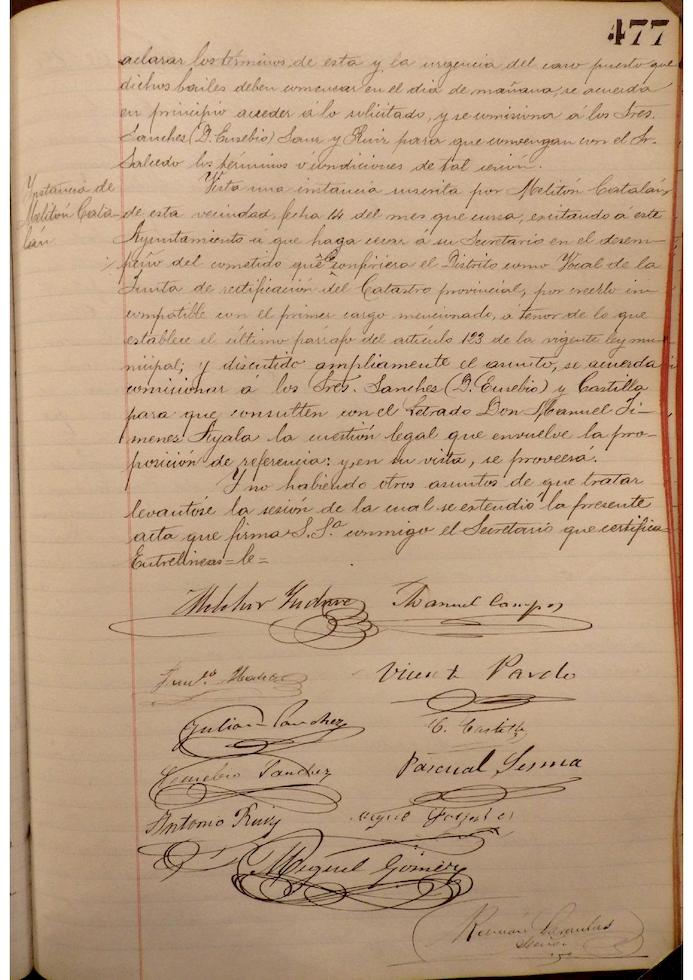 477
aclarar los términos de esta y la urgencia del caso puesto que
dichos bailes deben comenzar en el dia de mañana, se acuerda
en principio acceder á lo solicitado, y se comisiona á los Sres.
Sanchez (D. Eusebio) Sanz y Ruiz para que convengan con el Sr.
Salcedo los términos ó condiciones de tal cesión.
Ynstancia de
Melitón Cata-
lán
Vista una instancia suscrita por Melitón Catalán,
de esta vecindad, fecha 14 del mes que cursa, excitando á este
Ayuntamiento a que haga cesar á su Secretario en el desem-
peño del cometido que le confiriera el Distrito como Vocal de la
Junta de rectificación del Catastro provincial, por creerlo in-
compatible con el primer cargo mencionado, a tenor de lo que
establece el último párrafo del artículo 123 de la vigente ley mu-
nicipal; y discutido ampliamente el asunto, se acuerda
comisionar á los Sres. Sanchez (D. Eusebio) y Castilla
para que consulten con el Letrado Don Manuel Ji-
menez Ayala la cuestión legal que envuelve la pro-
posición de referencia: y, en su vista, se proveerá.
Y no habiendo otros asuntos de que tratar
levantóse la sesión de la cual se extendió la presente
acta que firma S. Sª. conmigo el Secretario que certifica=
Entrelineas=le=
Melchor Manuel Campos
Vicente Pardo
Julian Sanchez C. Castilla
Eusebio Sanchez Pascual Lesma
Antonio Ruiz
Miguel Gómez
Román